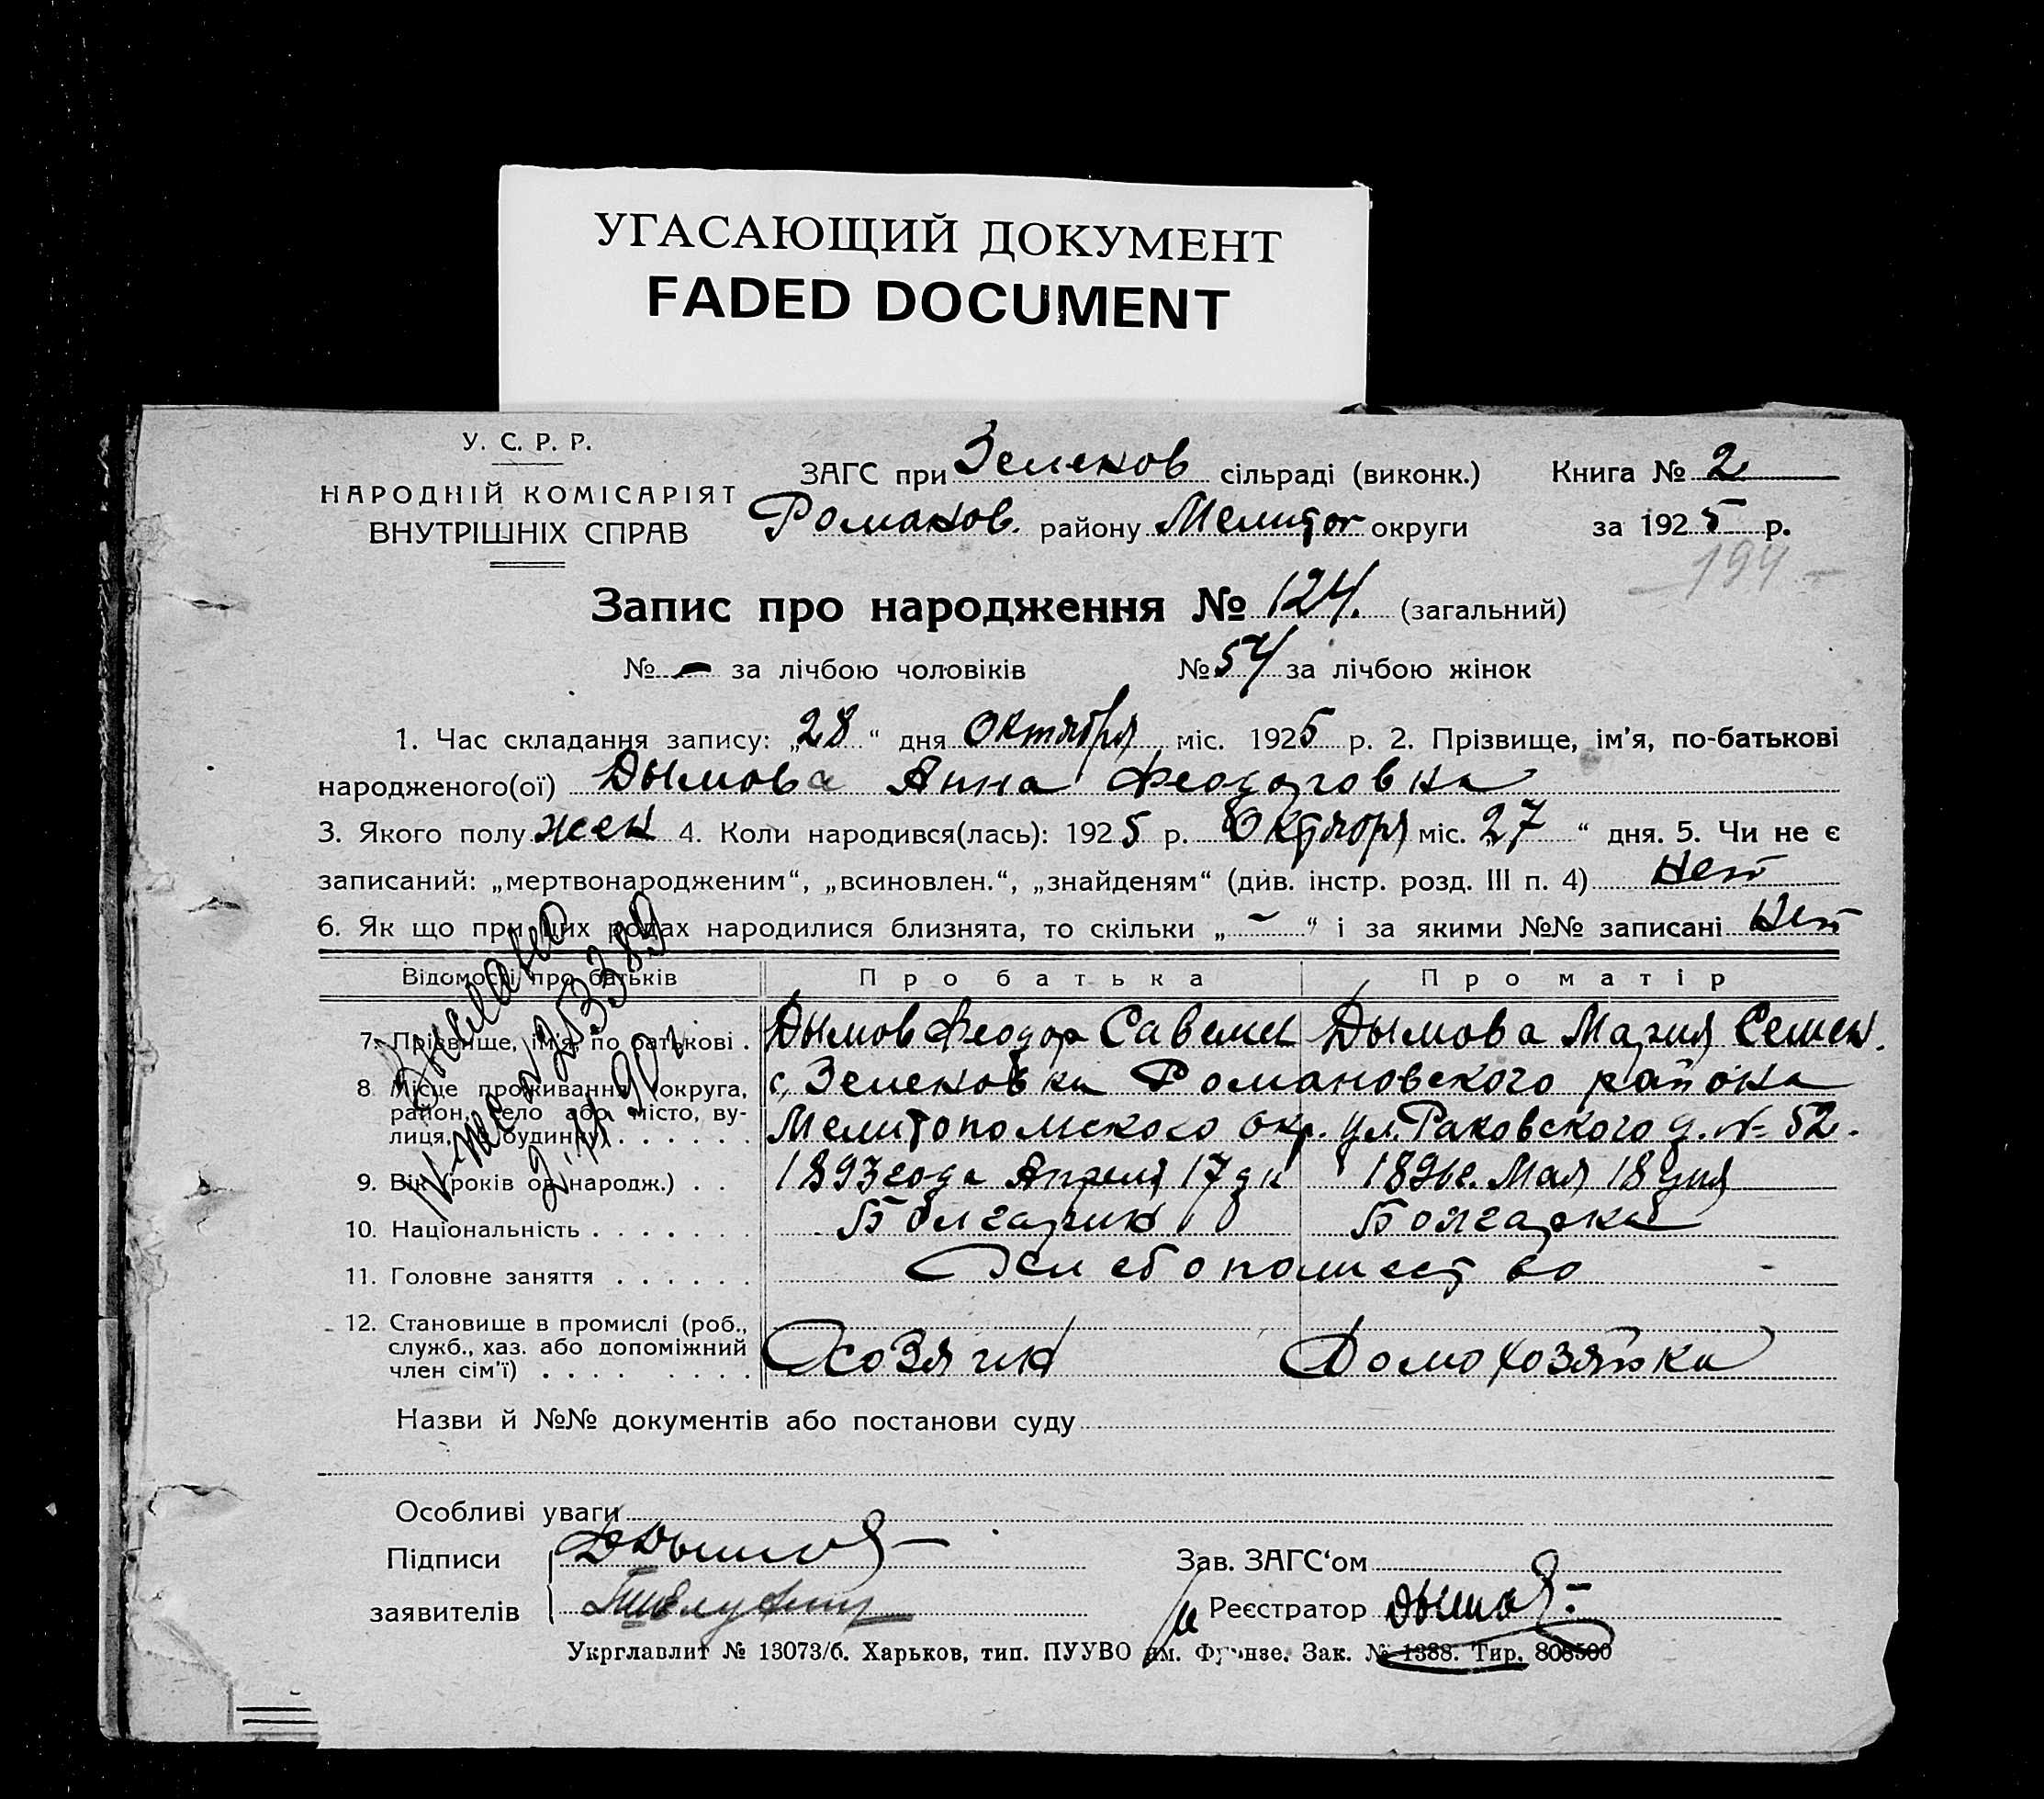 УГАСАЮЩИЙ ДОКУМЕНТ
FADED DOCUMENT
У. С. Р. Р.
НАРОДНІЙ КОМІСАРІЯТ
ВНУТРІШНІХ СПРАВ
ЗАГС при Зеленов сільраді (виконк.) Книга № 2
Романов. району Мелитоп округи за 1925 р.
194
Запис про народження № 124. (загальний)
№ - за лічбою чоловіків № 54 за лічбою жінок
1. Час складання запису: „28“ дня Октября міс. 1925 р. 2. Прізвище, ім'я, по-батькові
народженого(ої) Дымова Анна Феодоровна
3. Якого полу жен 4. Коли народився(лась): 1925 р. Октября міс. 27 “ дня. 5. Чи не є
записаний: „мертвонародженим“, „всиновлен.“, „знайденям“ (див. інстр. розд. III п. 4) Нет
6. Як що при цих родах народилися близнята, то скільки „-“ і за якими №№ записані Нет
Відомості про батьків Про батька Про матір
7. Прізвище, ім'я, по батькові . Дымов Феодор Савелиев Дымова Мария Семен.
8 Місце проживання (округа, с. Зеленовка Романовского района
район, село або місто, ву-
лиця, № будинку) . . . . . . Мелитопольского окр. ул. Раковского д. № 52.
9. Вік (років од народж.) . . 1893 года Апреля 17 дн 1896 г. Мая 18 дня
10. Національність . . . . . . . Болгарин Болгарка
11. Головне заняття . . . . . . Хлебопашество
12. Становище в промислі (роб.,
служб., хаз. або допоміжний Хозяин Домохозяйка
член сім'ї) . . . . . . . .
Назви й №№ документів або постанови суду
Особливі уваги
Підписи Дымов Зав. ЗАГС'ом
заявителів Реєстратор Дымов
Укрглавлит № 13073/б. Харьков, тип. ПУУВО им. Фрунзе. Зак. № 1388. Тир. 808500